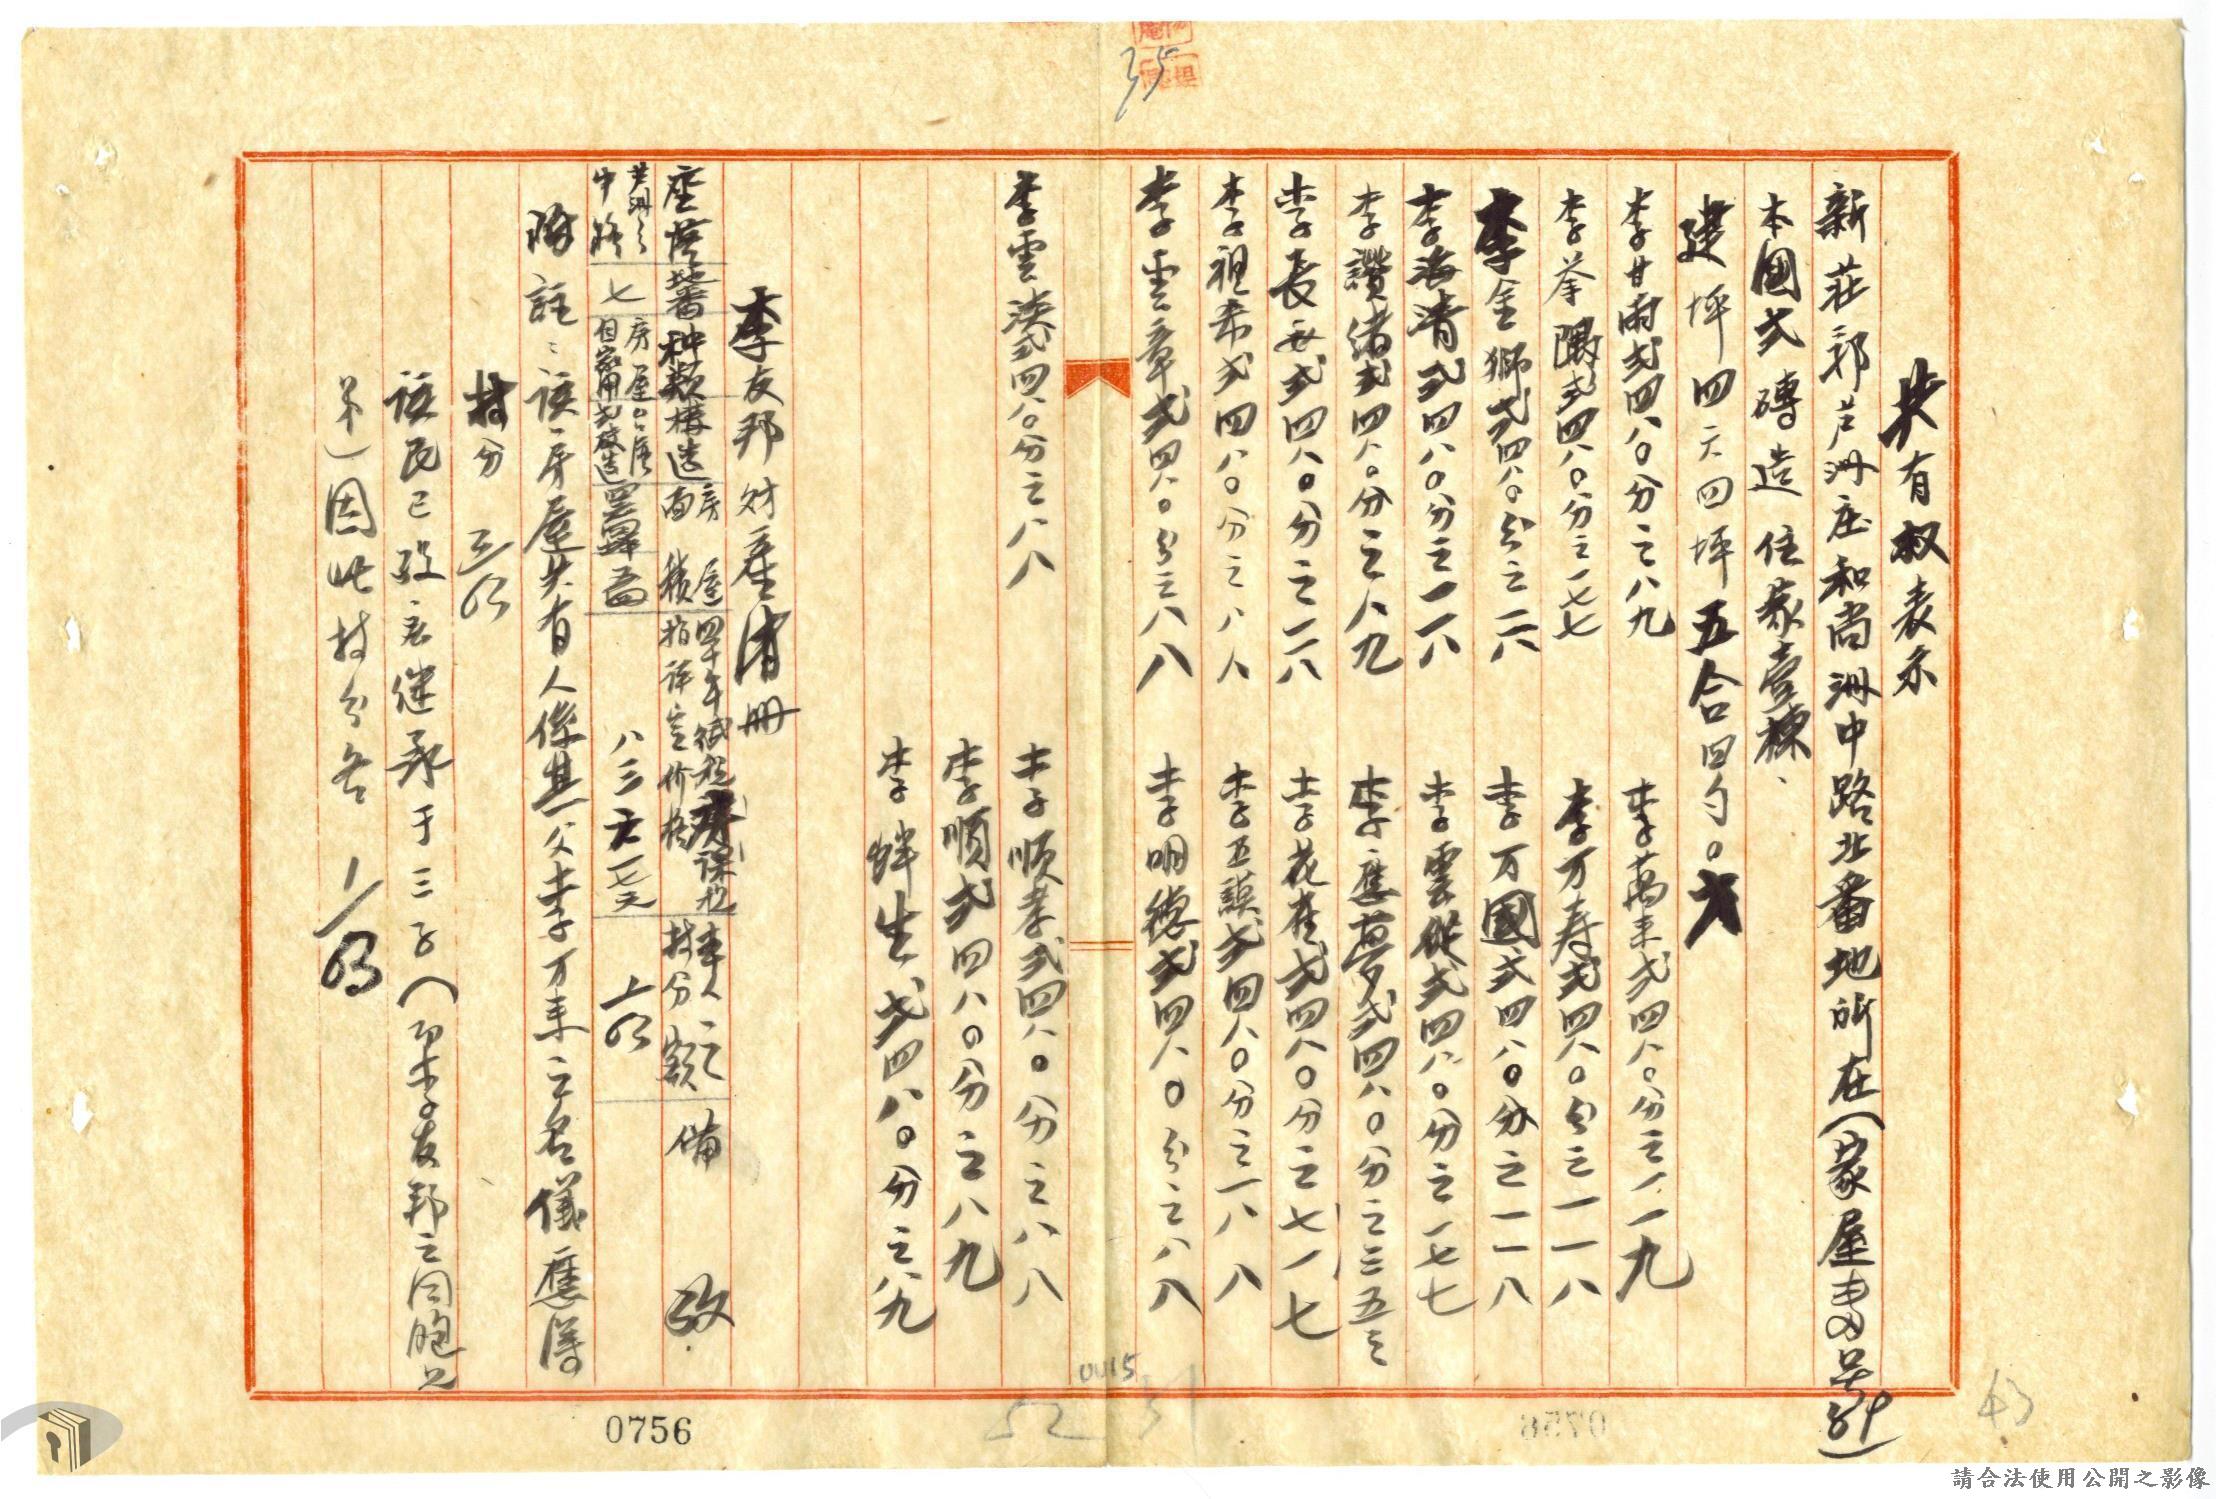 共有权表示
新莊郡芦洲庄和尚洲中路北番地所在(家屋番号
本國式磚造住家壹棟、
建坪四六四坪五合四勺。六
李甘雨弍四八〇分之八九
李萬来弍四八〇分之一一九
李拳隈弍四八〇分之一七七
李万寿弍四八〇分之一一八
李金獅弍四八〇分之二六
李万國弍四八〇分之一一八
李海清弍四八〇分之一一八
李雲從弍四八〇分之一七七
李讚緒弍四八〇分之八九
李應夢弍四八〇分之三五三
李長和弍四八〇分之一一八
李花崔弍四八〇分之七一七
李祖希弍四八〇分之八八
李五謨弍四八〇分之一八八
李雲章弍四八〇分之八八
李明德弍四八〇分之八八
李雲漢弍四八〇分之八八
李順孝弍四八〇分之八八
李順弍四八〇分之八九
李鉾生弍四八〇分之八九
李友邦財產清冊
座落地番种類構造 房屋面積 四十年 指評定价格 本人之持分額 備攷
芦洲 中路 七 房屋 自家用 八三六一七元
附註:該房屋共有人係其父李万来之名儀應得
持分
該民已故 繼承于三子(即李友邦之同胞兄
弟)因此持分各
0756
35
0015
52
43
請合法使用公開之影像